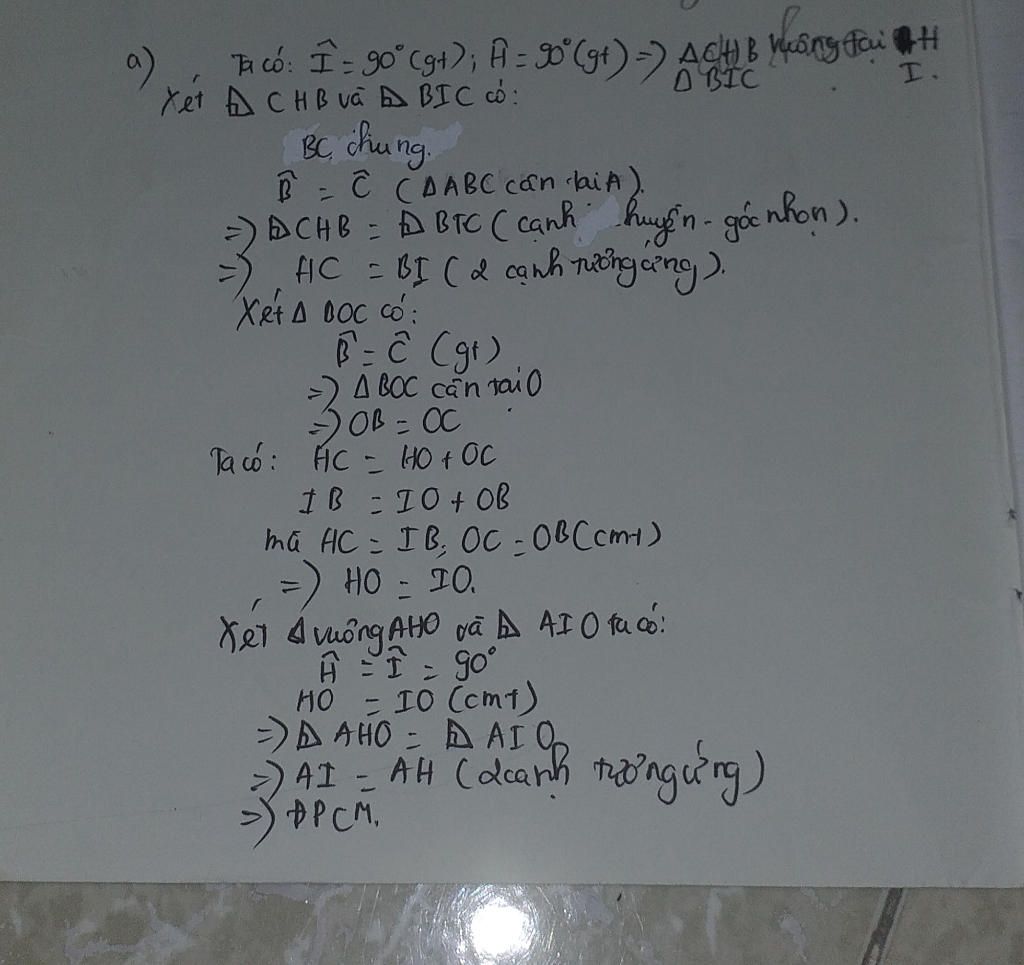 a) Ta có: Î = 90° (gt); Ĥ = 90° (gt) => ΔCHB vuông tại H
ΔBIC I.
Xét ⊿ CHB và ⊿ BIC có:
BC chung.
B̂ = Ĉ (ΔABC cân tại A).
=> ⊿CHB = ⊿BIC (cạnh huyền - góc nhọn).
=> HC = BI (2 cạnh tương ứng).
Xét Δ BOC có:
B̂ = Ĉ (gt)
=> ΔBOC cân tại O
=> OB = OC
Ta có: HC = HO + OC
IB = IO + OB
mà HC = IB; OC = OB (cmt)
=> HO = IO.
Xét Δ vuông AHO và ⊿ AIO ta có:
Ĥ = Î = 90°
HO = IO (cmt)
=> ⊿ AHO = ⊿ AIO
=> AI = AH (2 cạnh tương ứng)
=> ĐPCM.